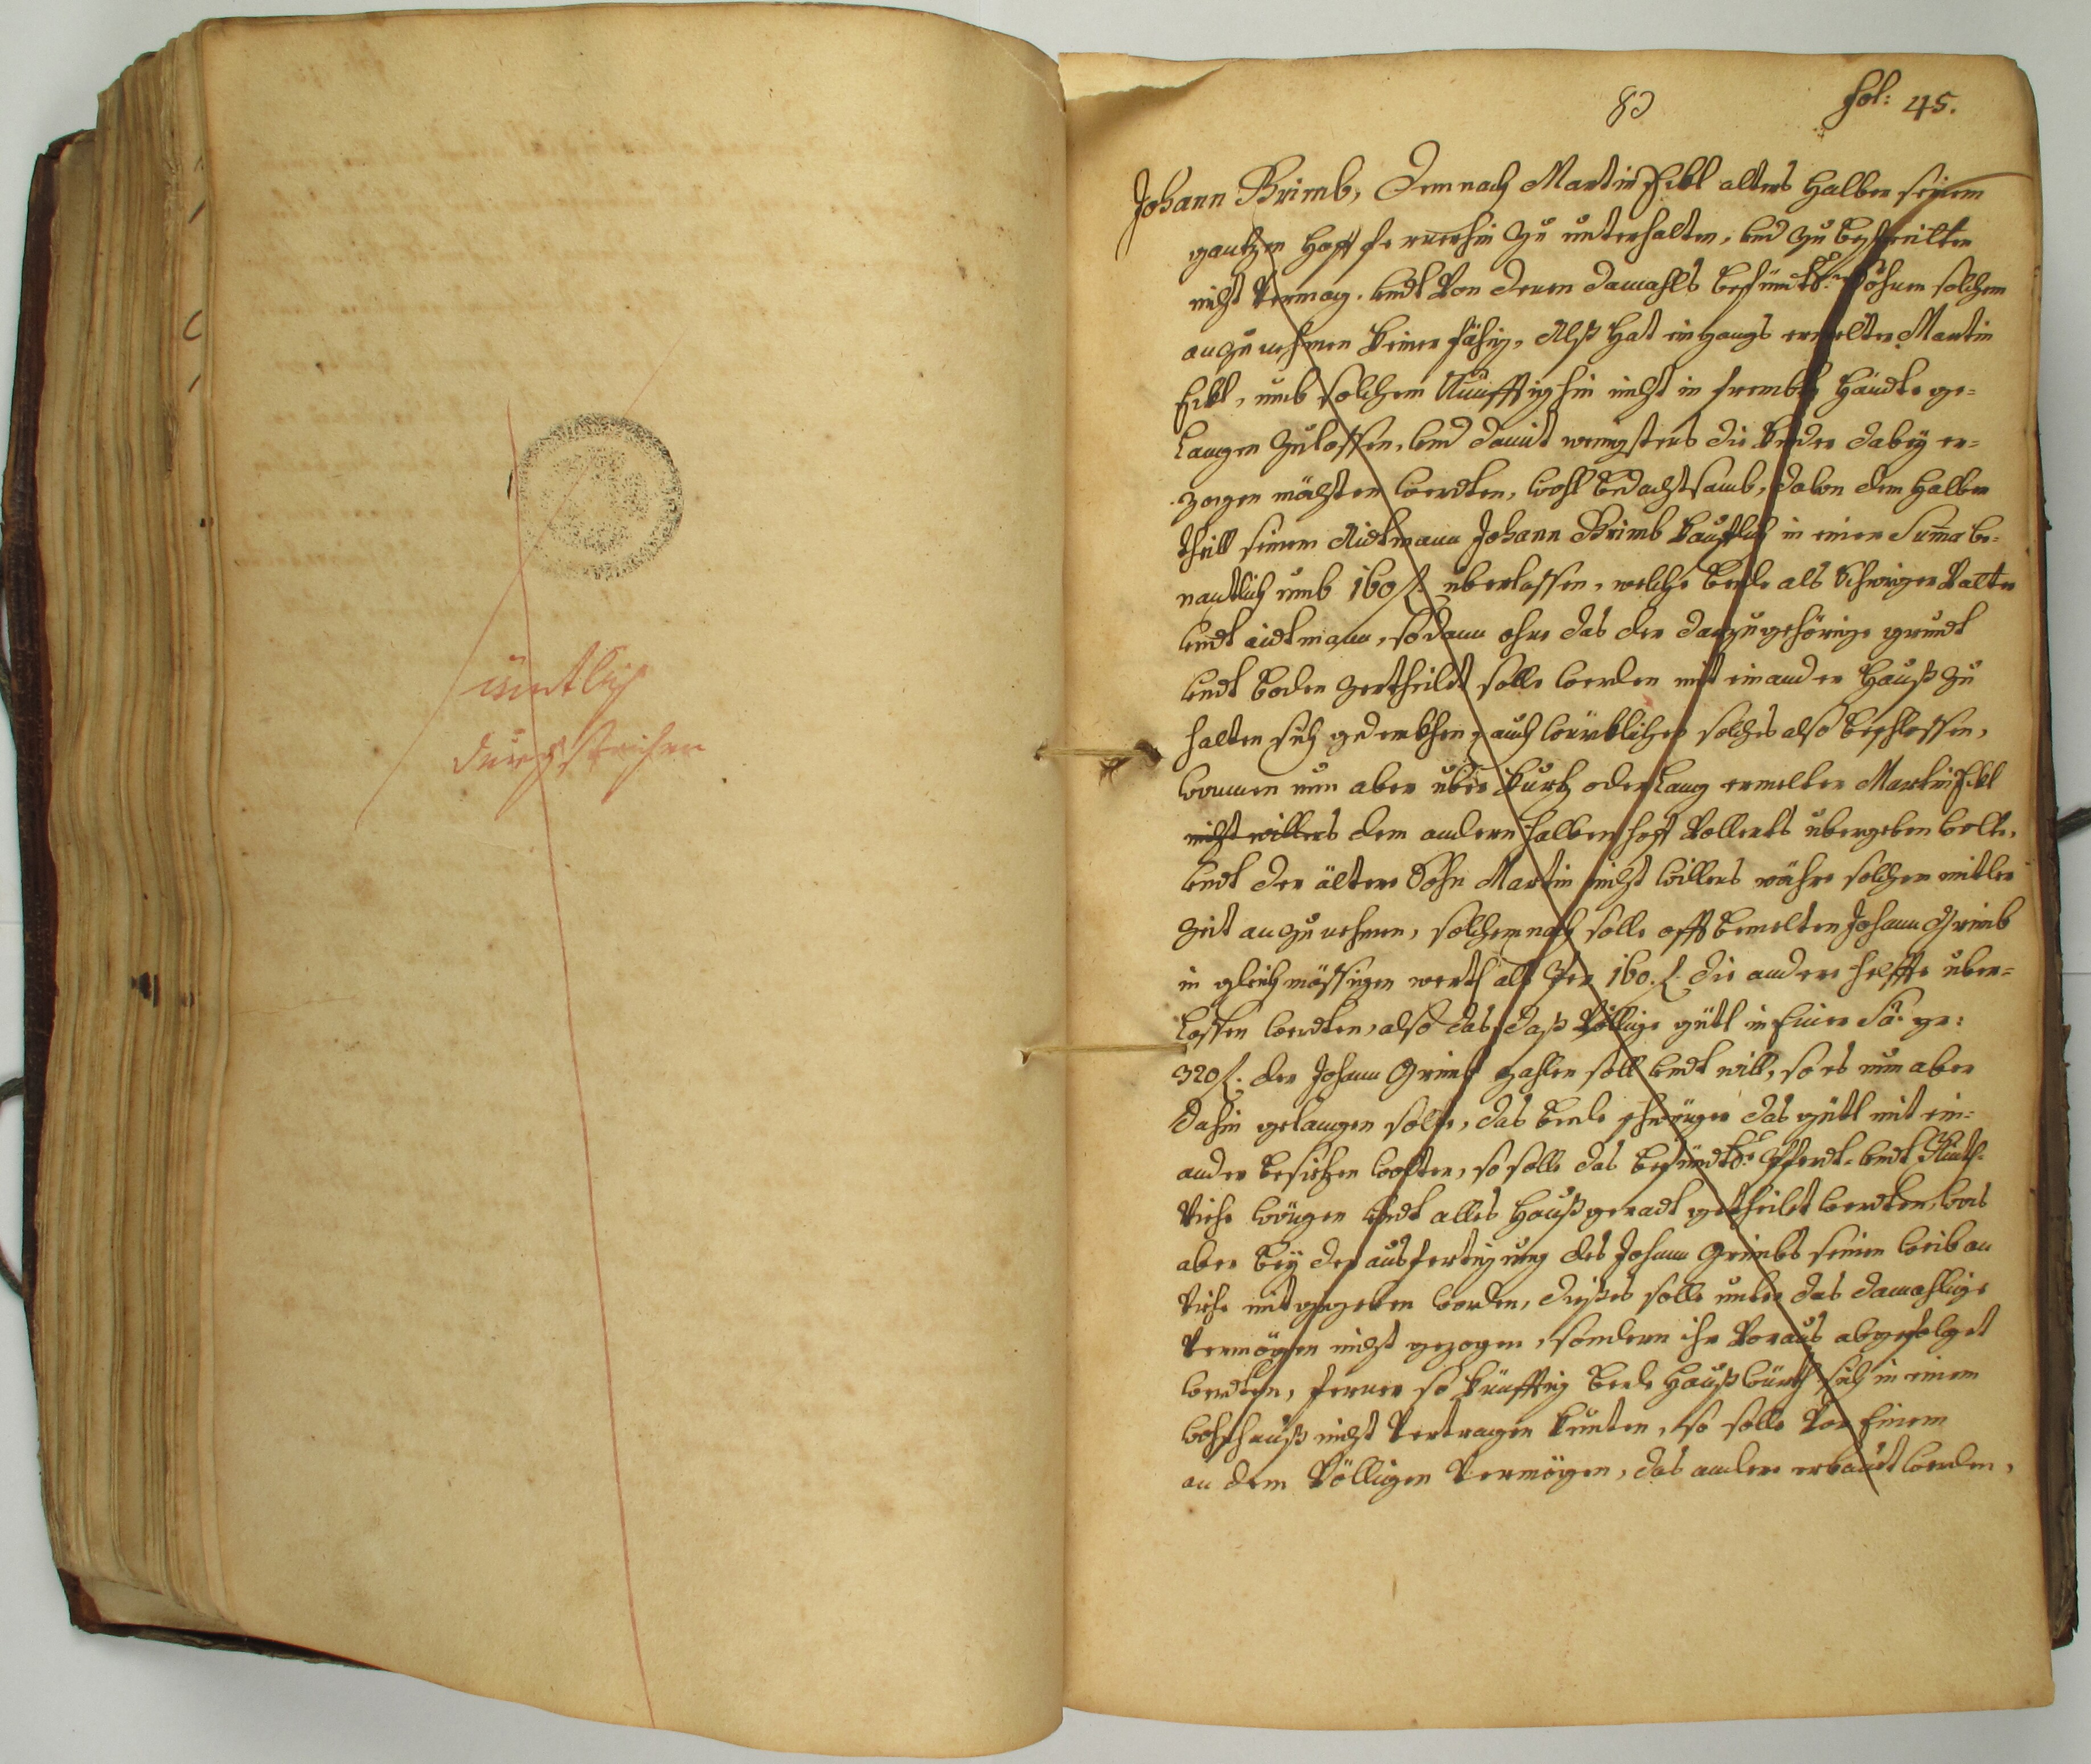 amtlich
durchstrichen
80
fol: 45.
Johann Brimb, Demnach Martin Eckl alters halber seinem
gantzen Hoff fernerhin zu unterhalten, und zu
nicht Vermag. undt Von denen damahls befündtl: Söhnen solchen
anzunehmen keiner fähig, Alß hat eingangs ermelter Martin
Eckl, umb solchem künfftighin nicht in frembte händte ge=
langen zulassen, und damit wenigstens die kinder dabey er=
zogen möchten werdten, wohl bedachtsamb, davon den halben
theill seinem Aidtmann Johann Brimb kaufflich in einer Summa be=
nantlich umb 160 f. uberlassen, welche beede als Schwiger Vatter
undt aidtmann, sodann ohne das der darzu gehörige grundt
undt boden zertheildt solle werden mit einander hauß zu
halten sich gedenkhen, auch würklichen solches also beschlossen,
wannen nun aber uber kurtz oder lang ermelter Martin Eckl
nicht willens den andern halben hoff Vollents ubergeben wolte,
undt der ältere Sohn Martin nicht willens währe solchen mitler
Zeit anzunehmen, solchemnach solle offt bemelten Johann Grimb
in gleichmässigen werth als per 160. f. die andere helffte uber=
lassen werdten, also das daß Völlige gütl in Einer Sa: ge:
320 f. der Johann Grimb zahlen soll undt will, so es nun aber
dahin gelangen solte, das beede schwäger das gütl mit ein=
ander besitzen wolten, so solle das befündtl: Pferdt= undt Rindt=
Viehe wägen undt alles haußgeradt getheilet werdten, was
aber bey der ausfertigung des Johann Grimbs seinen weib an
Viehe mitgegeben worden, dieses solle unter das damahlige
Vermögen nicht gezogen, sondern ihr Voraus abgefolget
werdten, ferner so künfftig beede haußwürth sich in einem
wohnhauß nicht Vertragen kunten, so solle Von Einem
an dem Völligen Vermögen, das andere erbaudt werden,